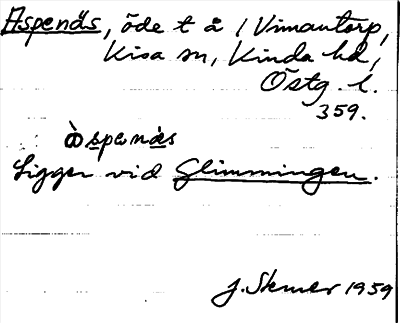 Aspenäs, öde t å 1 Vimantorp,
Kisa sn, Kinda hd,
Östg. l.
359.
àspənäs
Ligger vid Glimmingen.
J. Skmer 1959